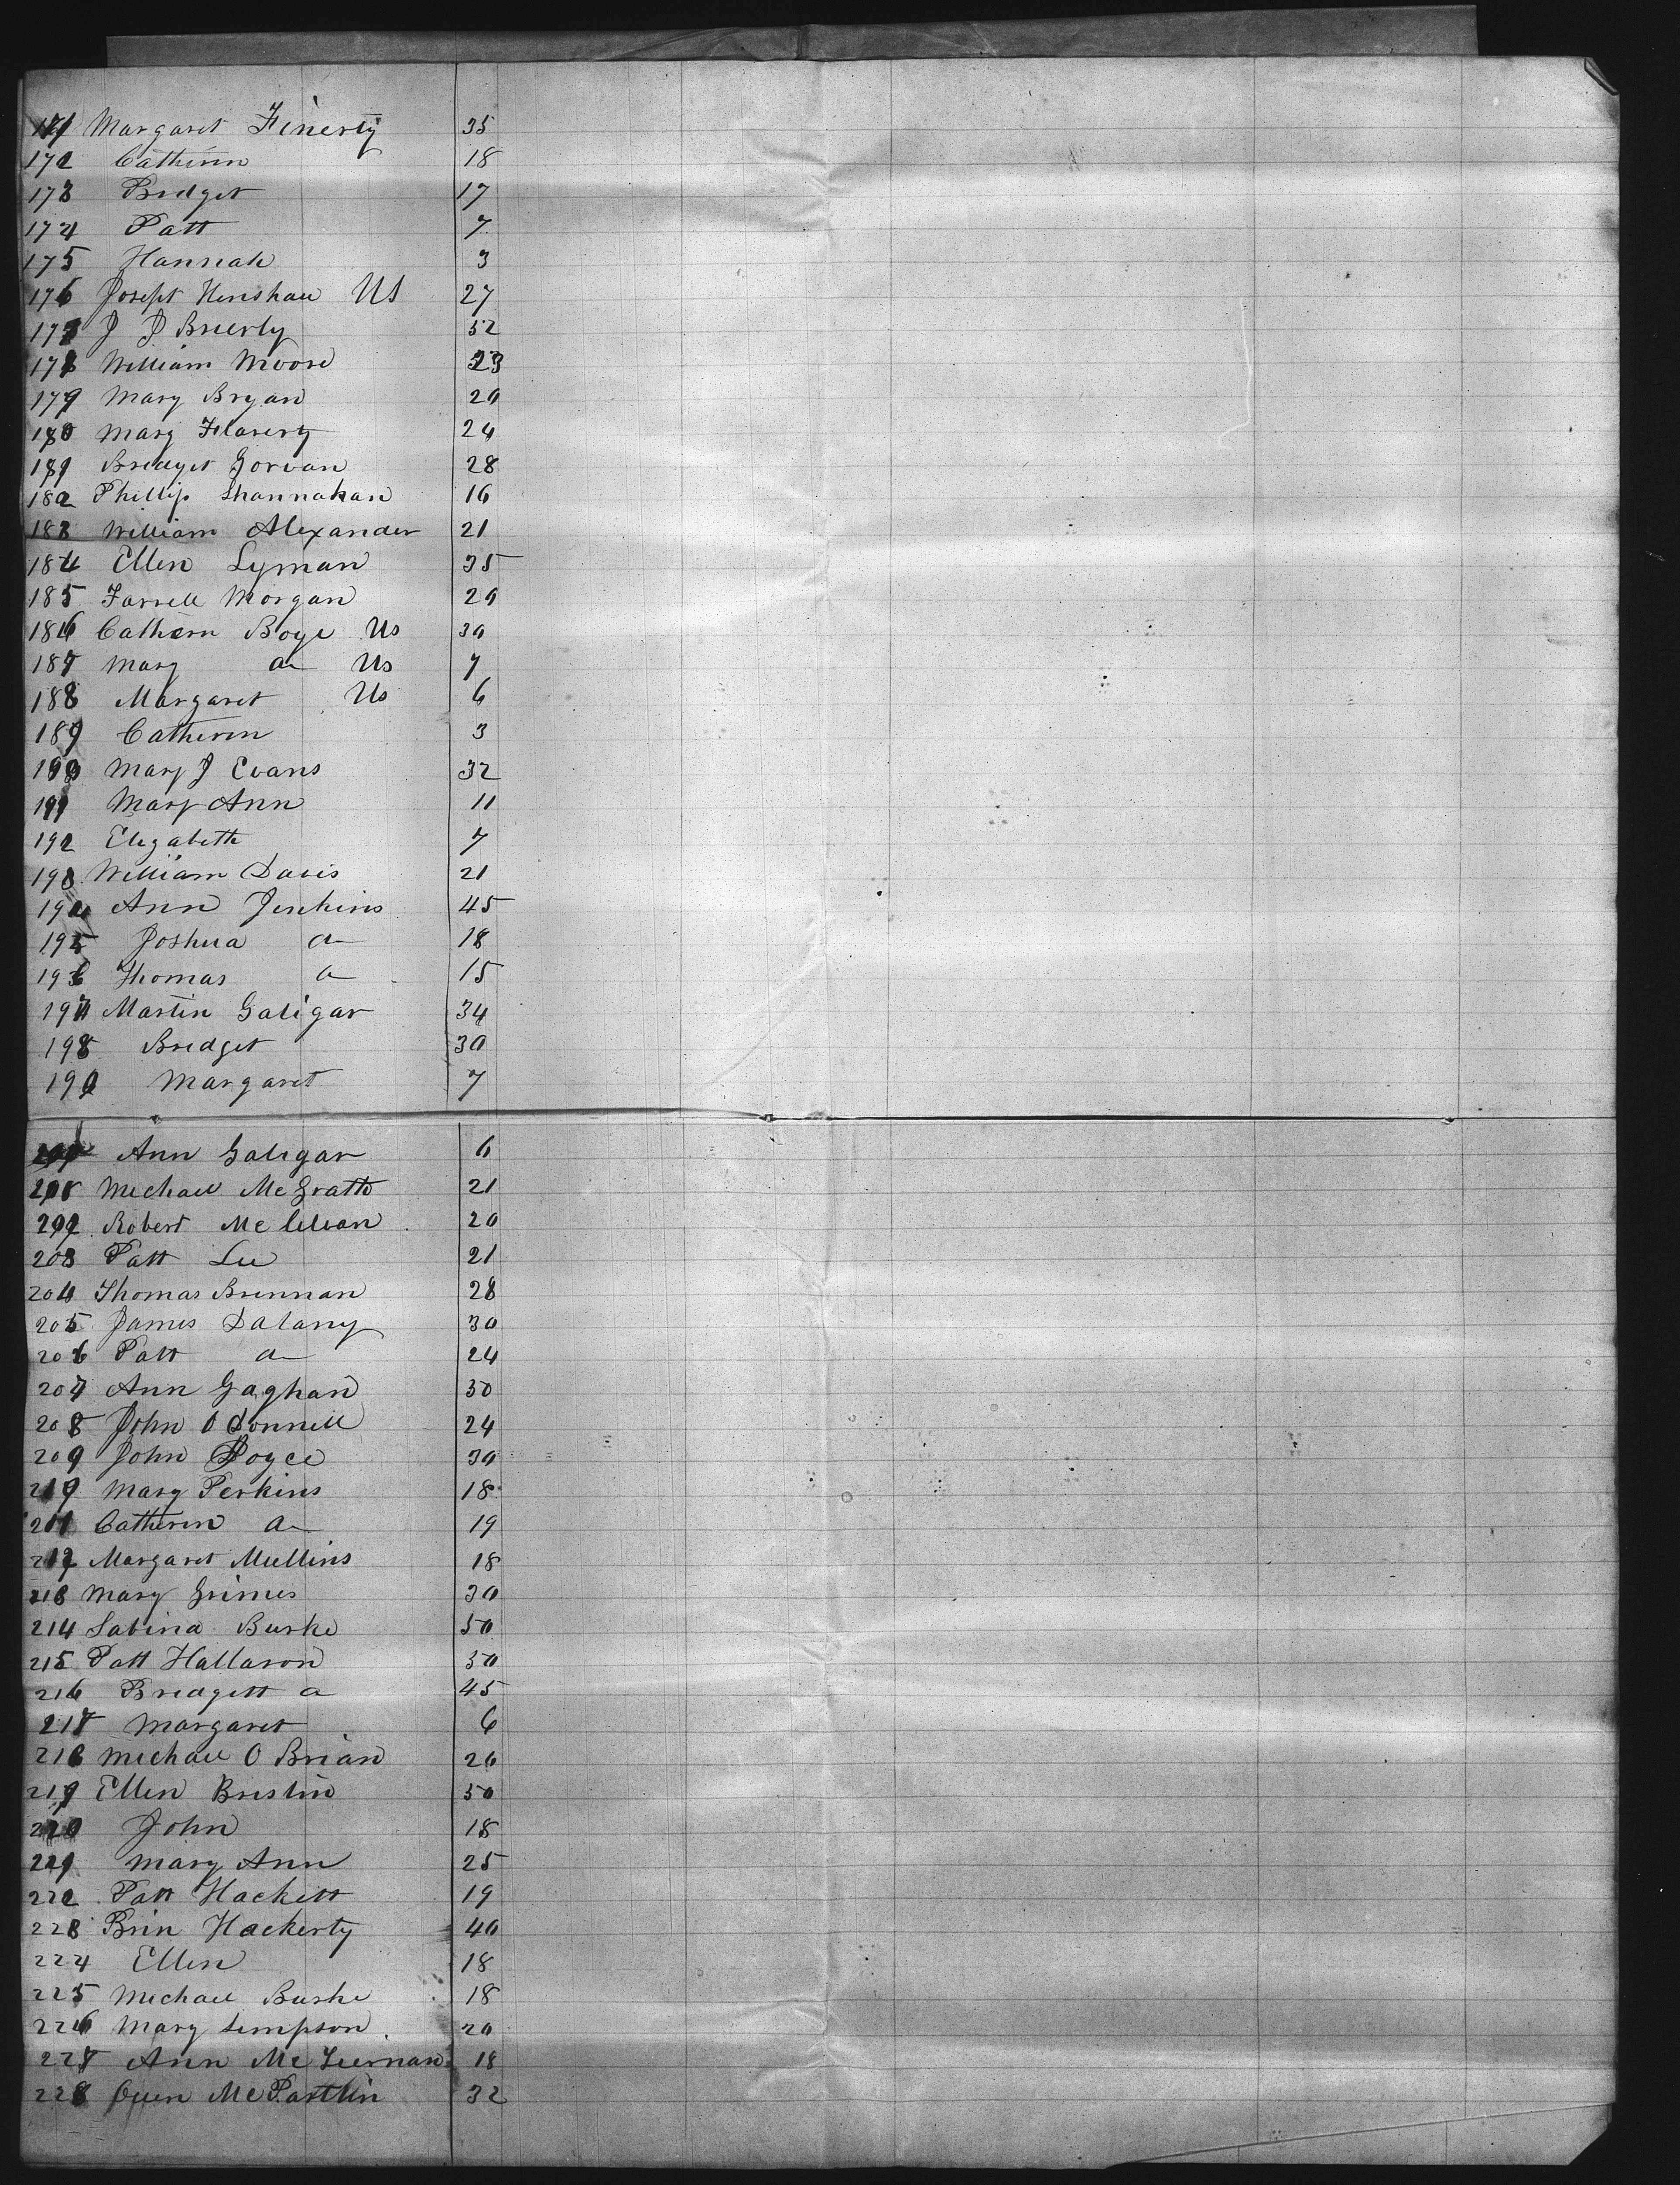 171 Margaret Finerty 35
172 Catherin 18
173 Bridget 17
174 Patt 7
175 Hannah 3
176 Joseph Henshaw US 27
177 J J Brierly 52
178 William Moore 23
179 Mary Bryan 20
180 Mary Flaverty 24
181 Bridget 28
182 Phillip Shannahan 16
183 William Alexander 21
184 Ellen Lyman 35
185 Farrell Morgan 20
186 Cathern Boyl Us 30
187 Mary a Us 7
188 Margaret Us 6
189 Catherin 3
190 Mary J Evans 32
191 Mary Ann 11
192 Elizabeth 7
193 William Davis 21
194 Ann Jenkins 45
195 Joshua a 18
196 Thomas a 15
197 Martin Galigar 34
198 Bridget 30
199 Margaret 7
200 Ann Galigar 6
201 Michael McGrath 21
202 Robert 20
203 Patt Lee 21
204 Thomas Brennan 28
205 James Dalany 30
206 Patt a 24
207 Ann Gaghan 50
208 John O Donnell 24
209 John Boyce 30
210 Mary Perkins 18
211 Catherin a 19
212 Margaret Mullins 18
213 Mary Grimes 30
214 Sabina Burke 50
215 Patt Hallaron 50
216 Bridgett a 45
217 Margaret 6
218 Michael O Brian 20
219 Ellen Breslin 50
220 John 18
221 Mary Ann 25
222 Patt Hackett 19
223 Brin Hackerty 40
224 Ellen 18
225 Michael Burke 18
226 Mary Simpson 20
227 Ann McTiernan 18
228 Owen McPartlin 32